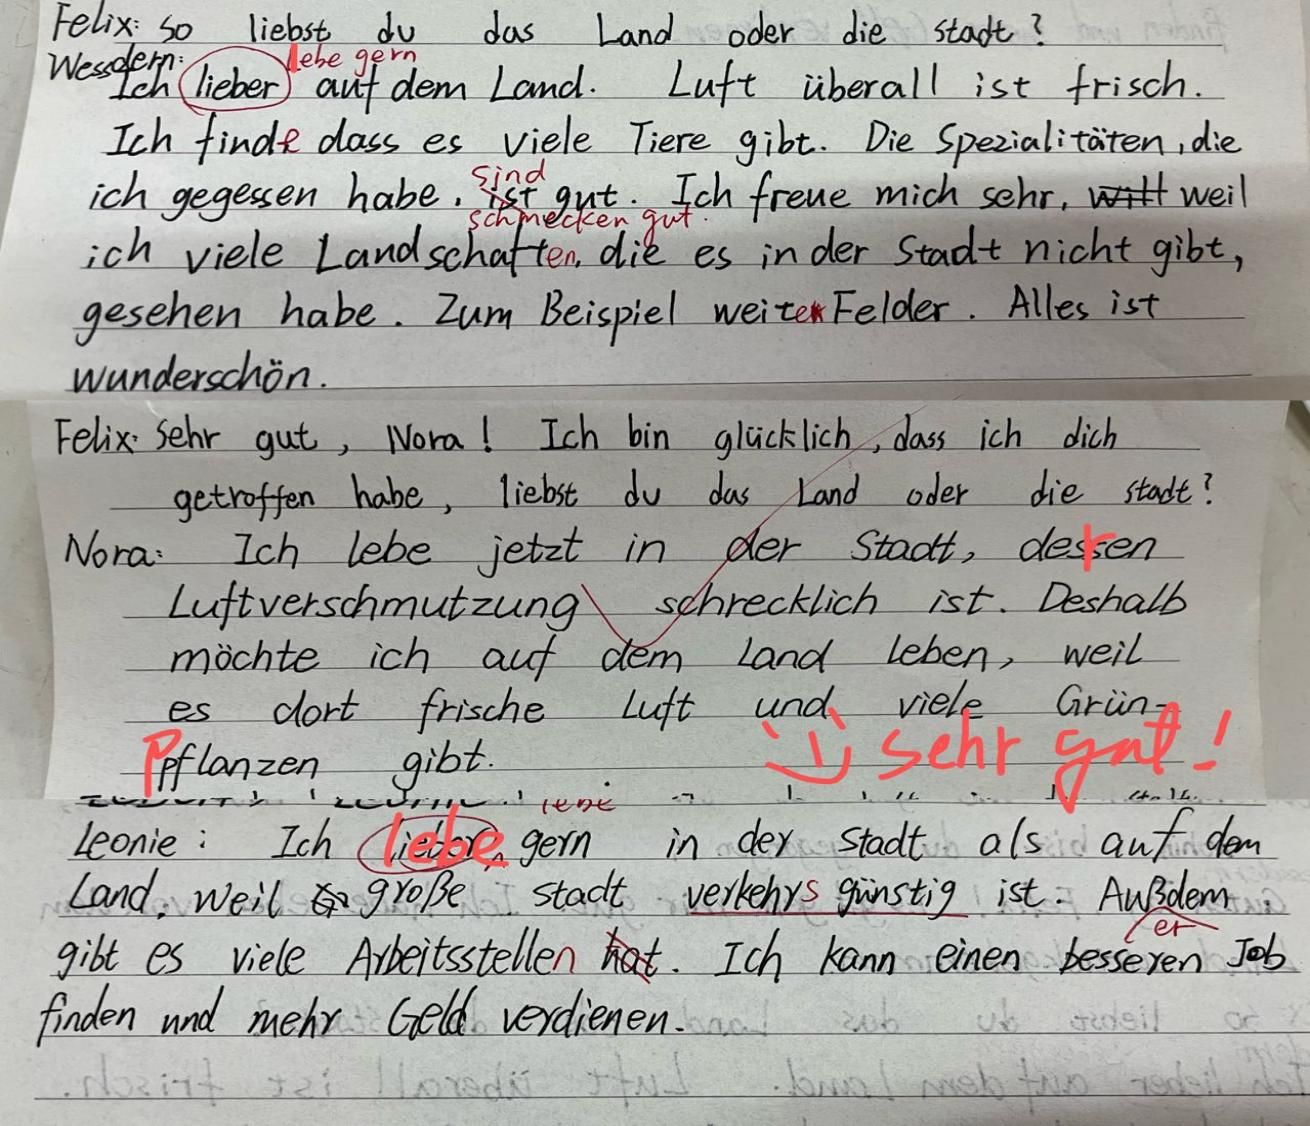 Felix: so liebst du das Land oder die stadt?
Wessdern: lebe gern
Ich lieber auf dem Land. Luft überall ist frisch.
Ich finde dass es viele Tiere gibt. Die Spezialitäten, die
sind
ich gegessen habe, ist gut. Ich freue mich sehr, weil
schmecken gut.
ich viele Landschaften, die es in der Stadt nicht gibt,
gesehen habe. Zum Beispiel weite Felder. Alles ist
wunderschön.
Felix: Sehr gut, Nora! Ich bin glücklich, dass ich dich
getroffen habe, liebst du das Land oder die stadt?
Nora: Ich lebe jetzt in der Stadt, deren
Luftverschmutzung schrecklich ist. Deshalb
möchte ich auf dem Land leben, weil
es dort frische Luft und viele Grün-
Pflanzen gibt. sehr gut!
lebe
Leonie: Ich lebe gern in der Stadt als auf dem
Land, weil große stadt verkehrsgünstig ist. Außdem
er
gibt es viele Arbeitsstellen hat. Ich kann einen besseren Job
finden und mehr Geld verdienen.